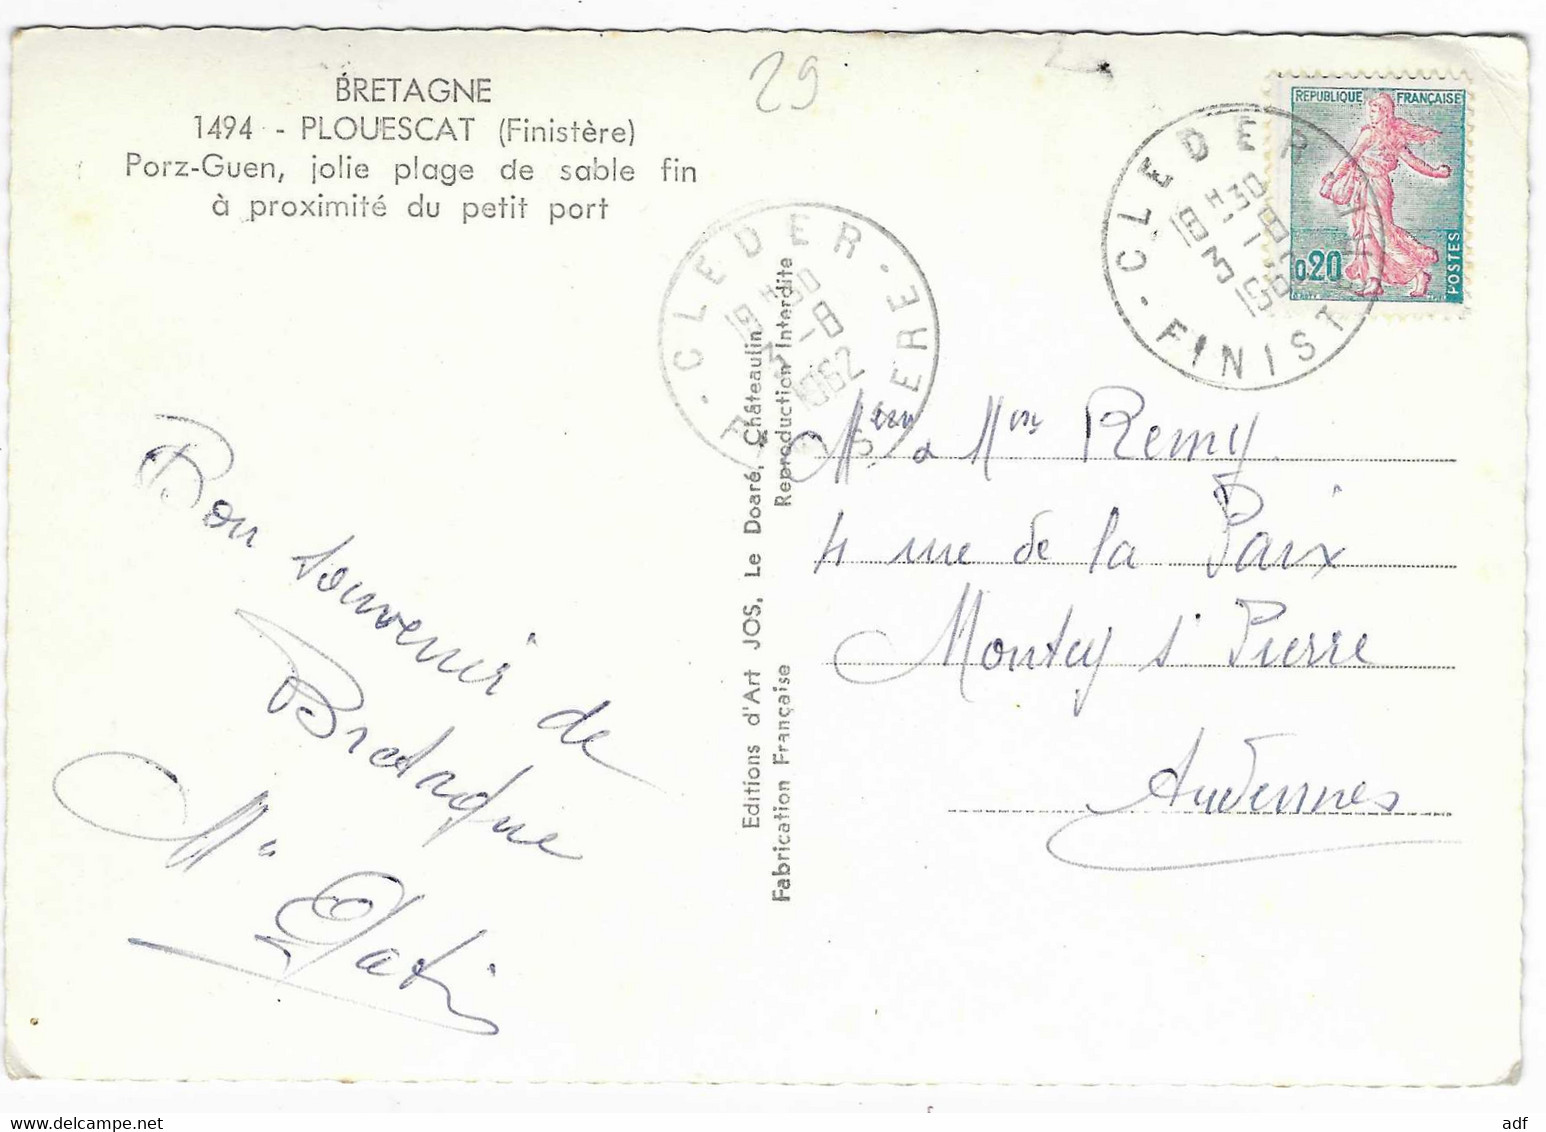 29
BRETAGNE
1494 - PLOUESCAT (Finistère)
Porz-Guen, jolie plage de sable fin
à proximité du petit port
REPUBLIQUE FRANÇAISE
0.20
POSTES
CLEDER
FINIST
18 H 30
3 - 8
CLEDER
ERE
18 H 30
3 - 8
1962
Editions d'Art JOS, Le Doaré, Châteaulin
Fabrication Française Reproduction Interdite
Bon souvenir de
Bretagne
& Remy
4 rue de la Paix
Montcy St Pierre
Ardennes
adf